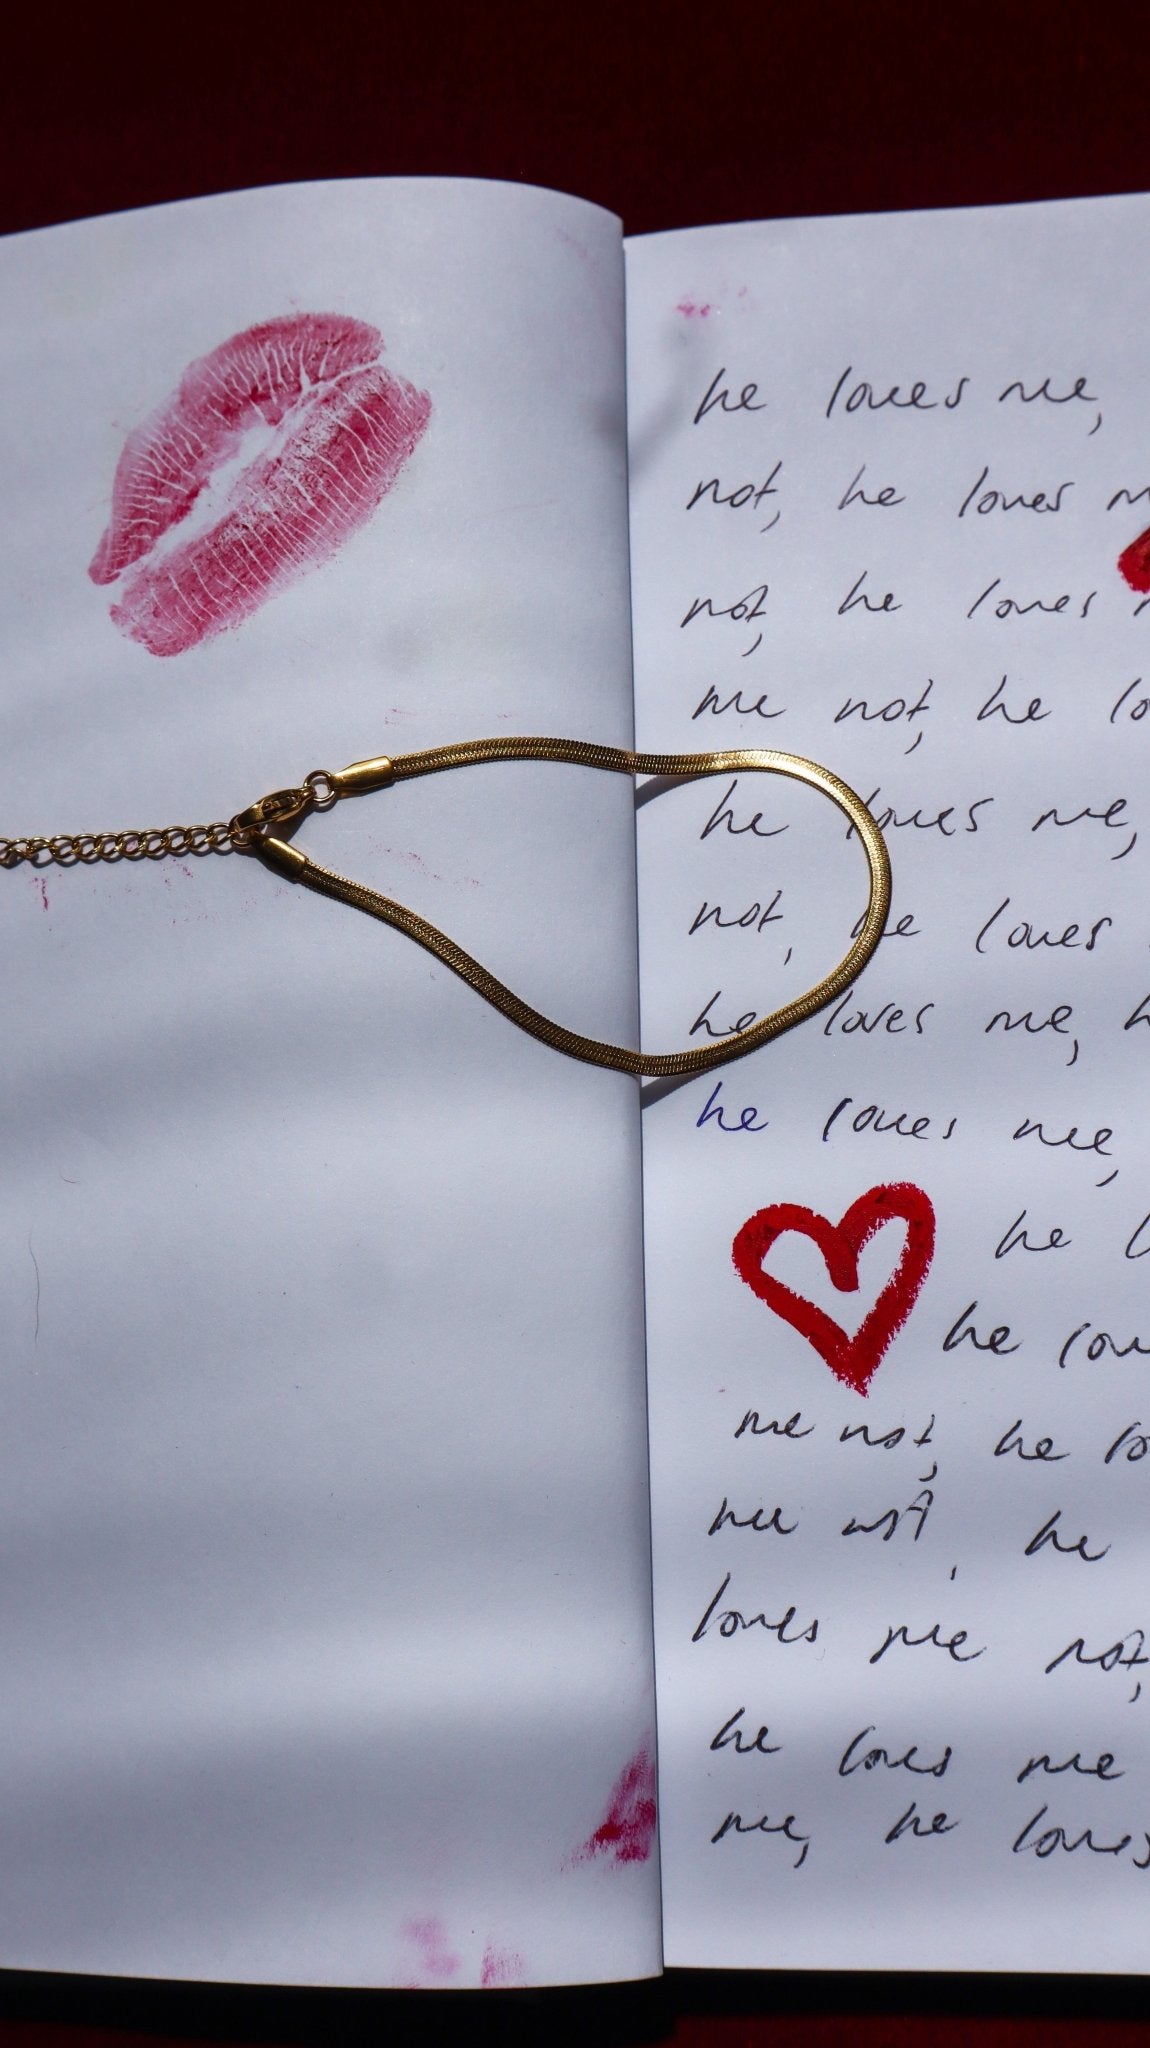 he loves me,
not, he loves m
not, he loves
me not, he lo
he loves me,
not, he loves
he loves me, h
he loves me,
he l
he lov
me not, he lo
me not, he
loves me not,
he loves me
me, he loves